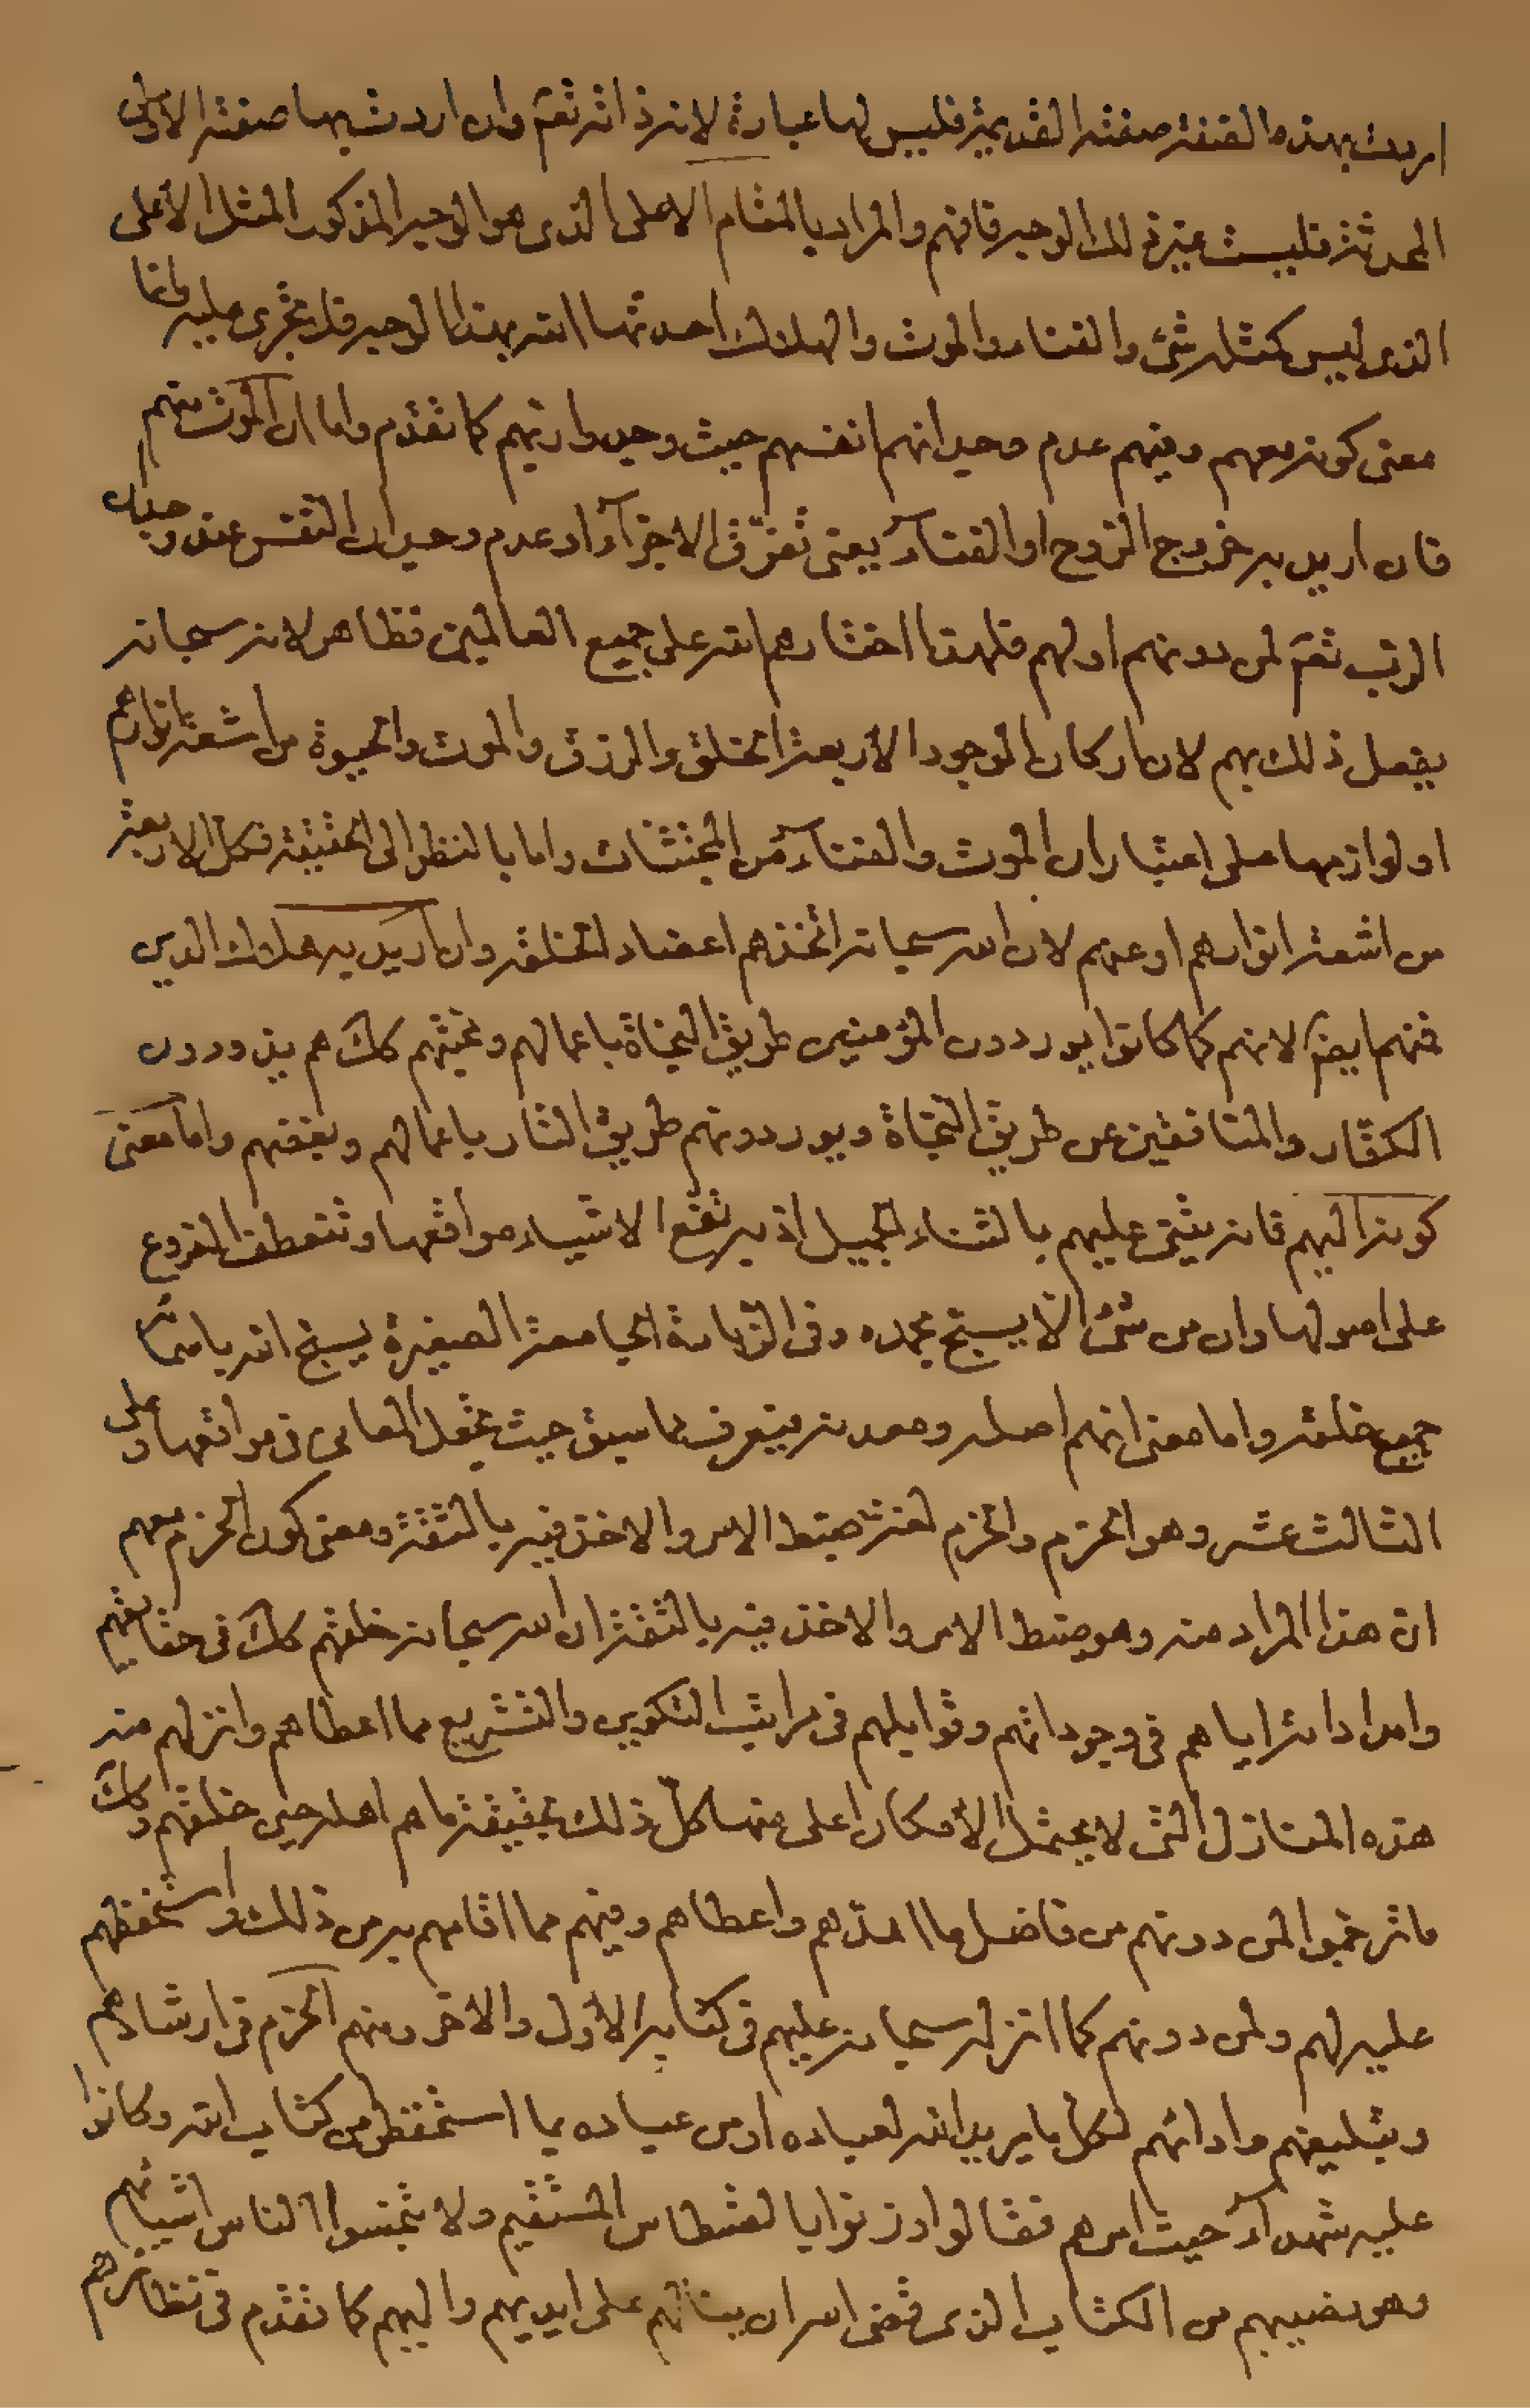 اردت بهذه الصفة صفته القديمة فليس لها عبارة لانه ذاته تعم وان اردت بها صفته الاولى
المحدثة فليست غير ذلك الوجه فافهم والمراد بالمقام الاعلى الذى هو الوجه المذكور المثل الأعلى
الذى ليس كمثله شئ والفناء والموت والهلاك احدثها الله بهذا الوجه فلا تجرى عليه وانما
معنى كونه معهم وفيهم عدم وجدانهم انفسهم حيث وجدوا ربهم كما تقدم واما ان الموت منهم
فان اريد به خروج الروح او الفنآء يعنى تفرّق الاجزآء او عدم وجدان النفس عند وجدان
الرب تعم لمن دونهم او لهم فلهذا اختارهم الله على جميع العالمين فظاهر لانه سبحانه
يفعل ذلك بهم لان اركان الوجود الأربعة الخلق والرزق والموت والحيوة من اشعة انوارهم
او لوازمها على اعتبار ان الموت والفنآء من المجتثات واما بالنظر الى الحقيقة فكل الاربعة
من اشعة انوارهم او عنهم لان الله سبحانه اتخذهم اعضاد لخلقه وان اريد به هلاك الدين
فمنهم ايضا لانهم كما كانوا يوردون المؤمنين طريق النجاة باعمالهم ومحبتهم كك هم يذودون
الكفّار والمنافقين عن طريق النجاة ويوردونهم طريق النار باعمالهم وبغضهم واما معنى
كونه اليهم فانه يثنى عليهم بالثناء الجميل اذ به تقع الاشياء مواقعها وتنعطف الفروع
على اصولها وان من شئ الّا يسبّح بحمده وفى الزيارة الجامعة الصغيرة يسبح الله باسمائه
جميع خلقه واما معنى انهم اصله ومعدنه فيعرف مما سبق حيث تجعل المعانى فى مواقعها وعلى
الثالث عشر وهو الحزم والحزم لغة ضبط الامر والاخذ فيه بالثقة ومعنى كون الحزم معهم
ان هذا المراد منه وهو ضبط الامر والاخذ فيه بالثقة ان الله سبحانه خلقهم كك فى حقايقهم
وامداداته اياهم فى وجوداتهم وقوابلهم فى مراتب التكوين والتشريع مما اعطاهم وانزلهم منه
هذه المنازل التى لا يحتمل الأمكان اعلى منها كلّ ذلك بحقيقة ما هم اهله حين خلقهم وكك
ما ترجموا لمن دونهم من فاضل ما امدّهم واعطاهم وفيهم مما اقامهم به من ذلك واستحفظهم
عليه لهم ولمن دونهم كما انزله سبحانه عليهم فى كتابه الأول والاخر ومنهم الحزم فى ارشادهم
وتبليغهم وادائهم لكل ما يريد الله لعباده او من عباده بما استحفظوا من كتاب الله وكانوا
عليه شهدآء حيث امرهم فقالوا وزنوا بالقسطاس المستقيم ولا تبخسوا الناس اشياءهم
وهو نصيبهم من الكتاب الذى قضى الله ان ينالهم على ايديهم واليهم كما تقدم فى نظائرهم